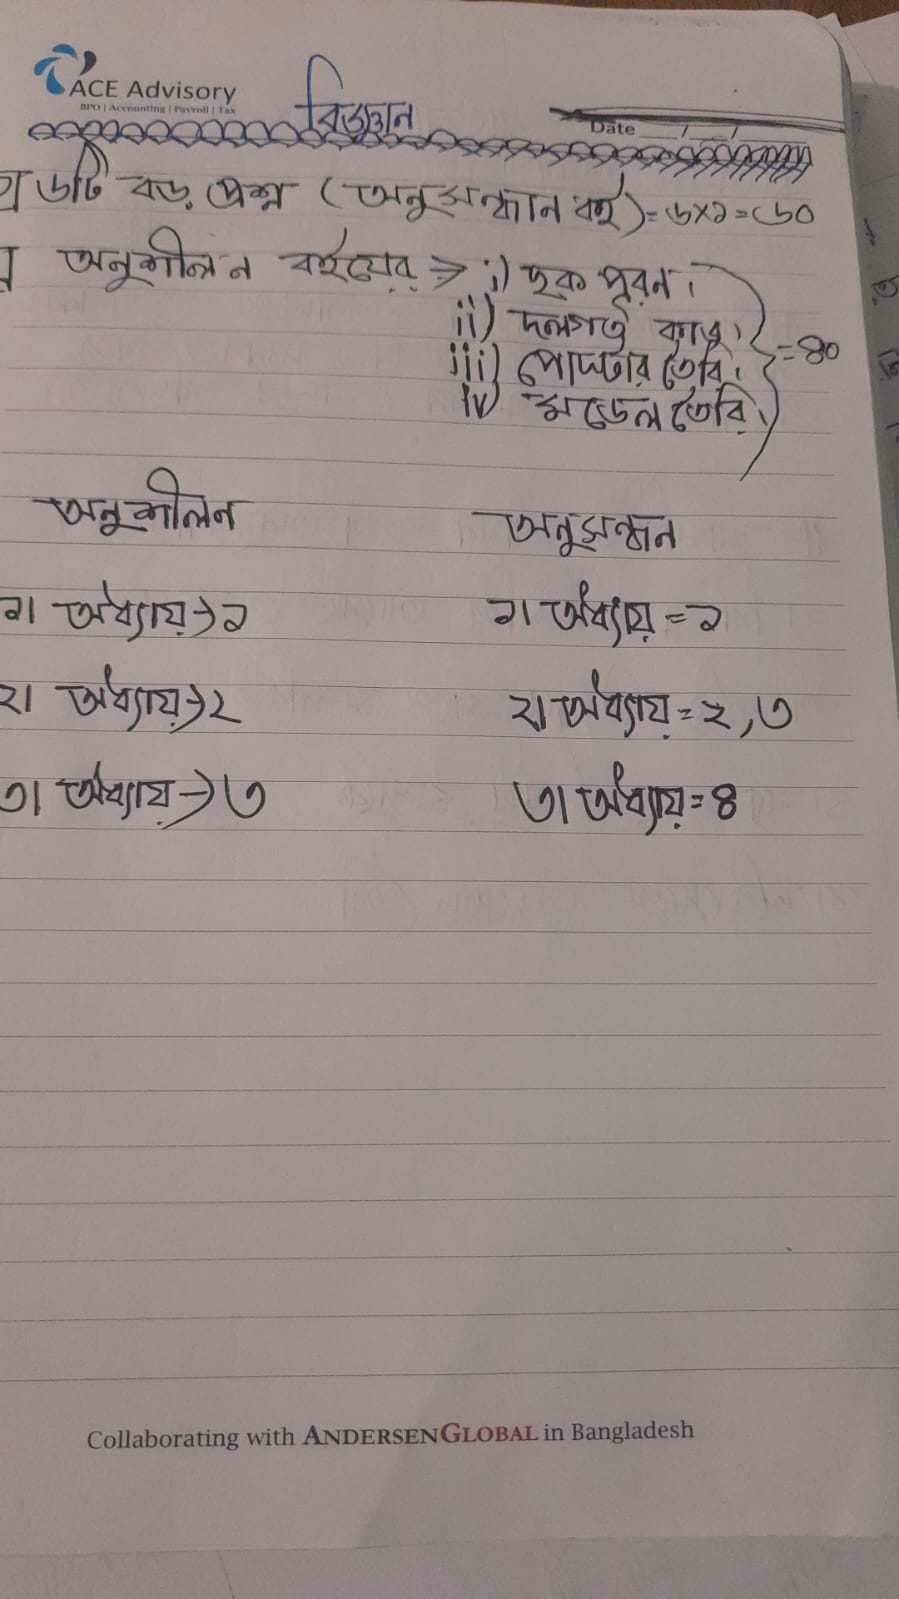 ACE Advisory
BPO | Accounting | Payroll | Tax
বিজ্ঞান
Date __/__/__
৬টি বড় প্রশ্ন (অনুসন্ধান বই)=৬×১=৬০
অনুশীলন বইয়ের → i) ছক পূরণ।
ii) দলগত কাজ।
iii) পোস্টার তৈরি। =৪০
iv) মডেল তৈরি।
অনুশীলন অনুসন্ধান
১। অধ্যায়→১ ১। অধ্যায়=১
২। অধ্যায়→২ ২। অধ্যায়=২,৩
৩। অধ্যায়→৩ ৩। অধ্যায়=৪
Collaborating with ANDERSEN GLOBAL in Bangladesh